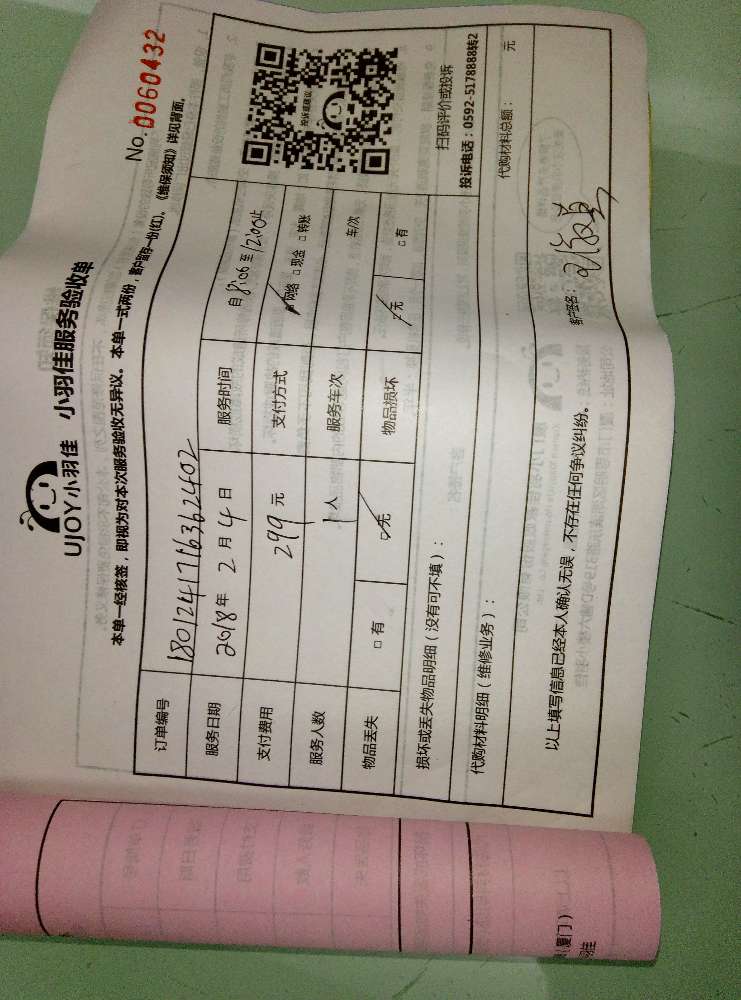 UJOY小羽佳 小羽佳服务验收单
No. 0060432
本单一经核签，即视为对本次服务验收无异议。本单一式两份，客户留存一份(红)。《维保须知》详见背面。
订单编号 180124171636362402
服务日期 2018年 2月 4日 服务时间 自 8:06 至 12:00 止
支付费用 299 元 支付方式 网络 □现金 □转账
服务人数 1 人 服务车次 车/次
物品丢失 □有 □无 物品损坏 □无 □有
损坏或丢失物品明细（没有可不填）：
投诉或建议
扫码评价或投诉
投诉电话：0592-5178888转2
代购材料明细（维修业务）： 代购材料总额： 元
以上填写信息已经本人确认无误，不存在任何争议纠纷。 客户签名：
（厦门）